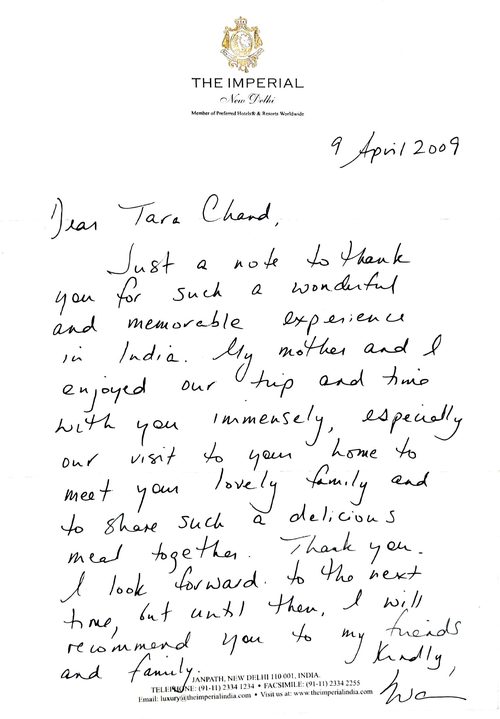 THE IMPERIAL
New Delhi
Member of Preferred Hotels® & Resorts Worldwide
9 April 2009
Dear Tara Chand,
Just a note to thank
you for such a wonderful
and memorable experience
in India. My mother and I
enjoyed our trip and time
with you immensely, especially
our visit to your home to
meet your lovely family and
to share such a delicious
meal together. Thank you.
I look forward to the next
time, but until then, I will
recommend you to my friends
and family. Kindly,
JANPATH, NEW DELHI 110 001, INDIA.
TELEPHONE: (91-11) 2334 1234 • FACSIMILE: (91-11) 2334 2255
Email: luxury@theimperialindia.com • Visit us at: www.theimperialindia.com